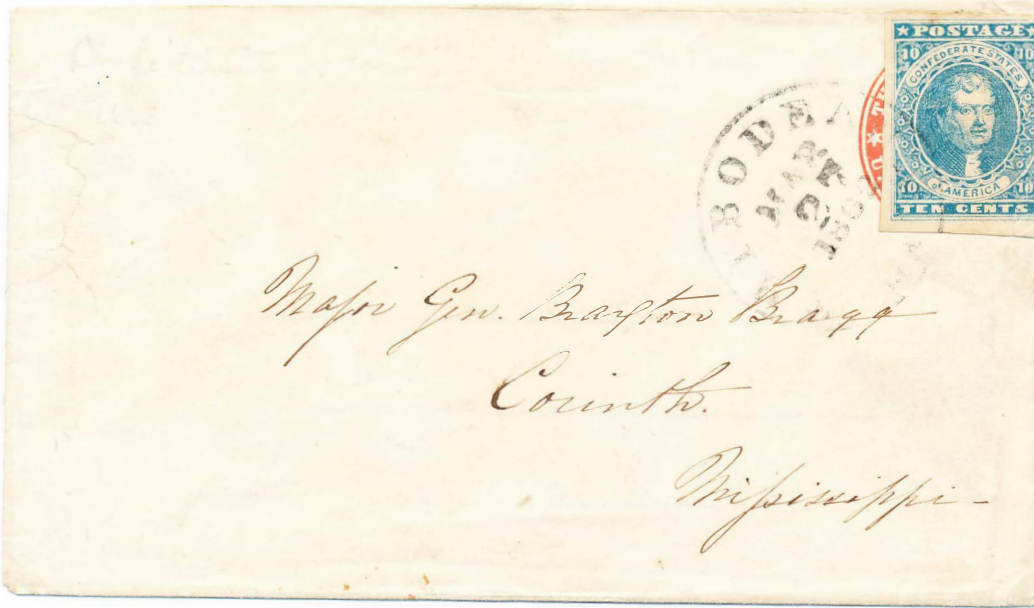 ★ POSTAGE ★
10 10
CONFEDERATE STATES
of AMERICA
10 10
TEN CENTS
MAR
27
Major Gen. Braxton Bragg
Corinth.
Mississippi -